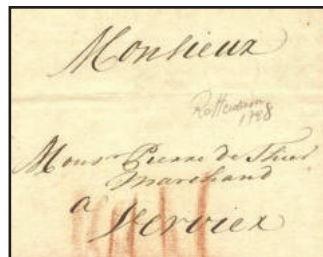 Monsieur
Rotterdam
1788
Monsr Pierre de Thier
Marchand
a
Verviex